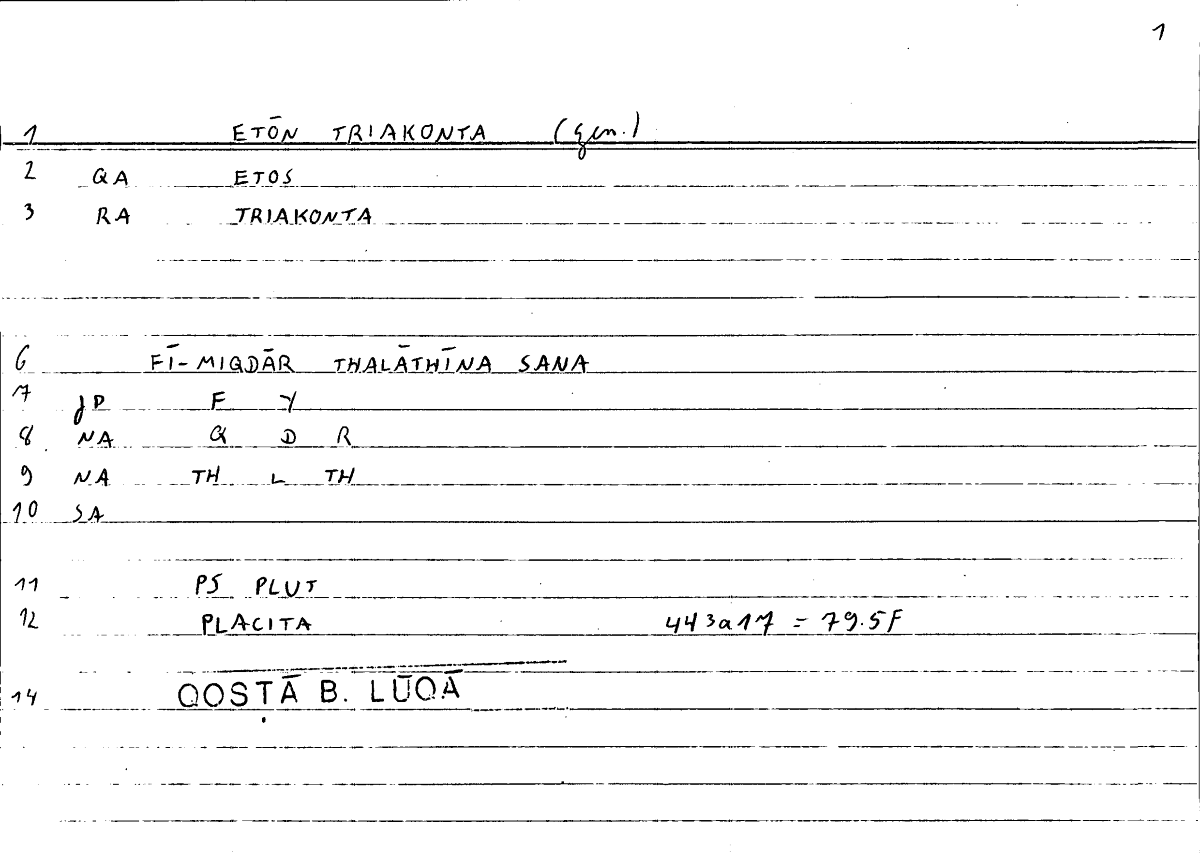 1
1 ETŌN TRIAKONTA (gen.)
2 QA ETOS
3 RA TRIAKONTA
6 FĪ-MIQDĀR THALĀTHĪNA SANA
7 JP F Y
8 NA Q D R
9 NA TH L TH
10 SA
11 PS PLUT
12 PLACITA 443a17 = 79.5F
14 QOSṬĀ B. LŪQĀ